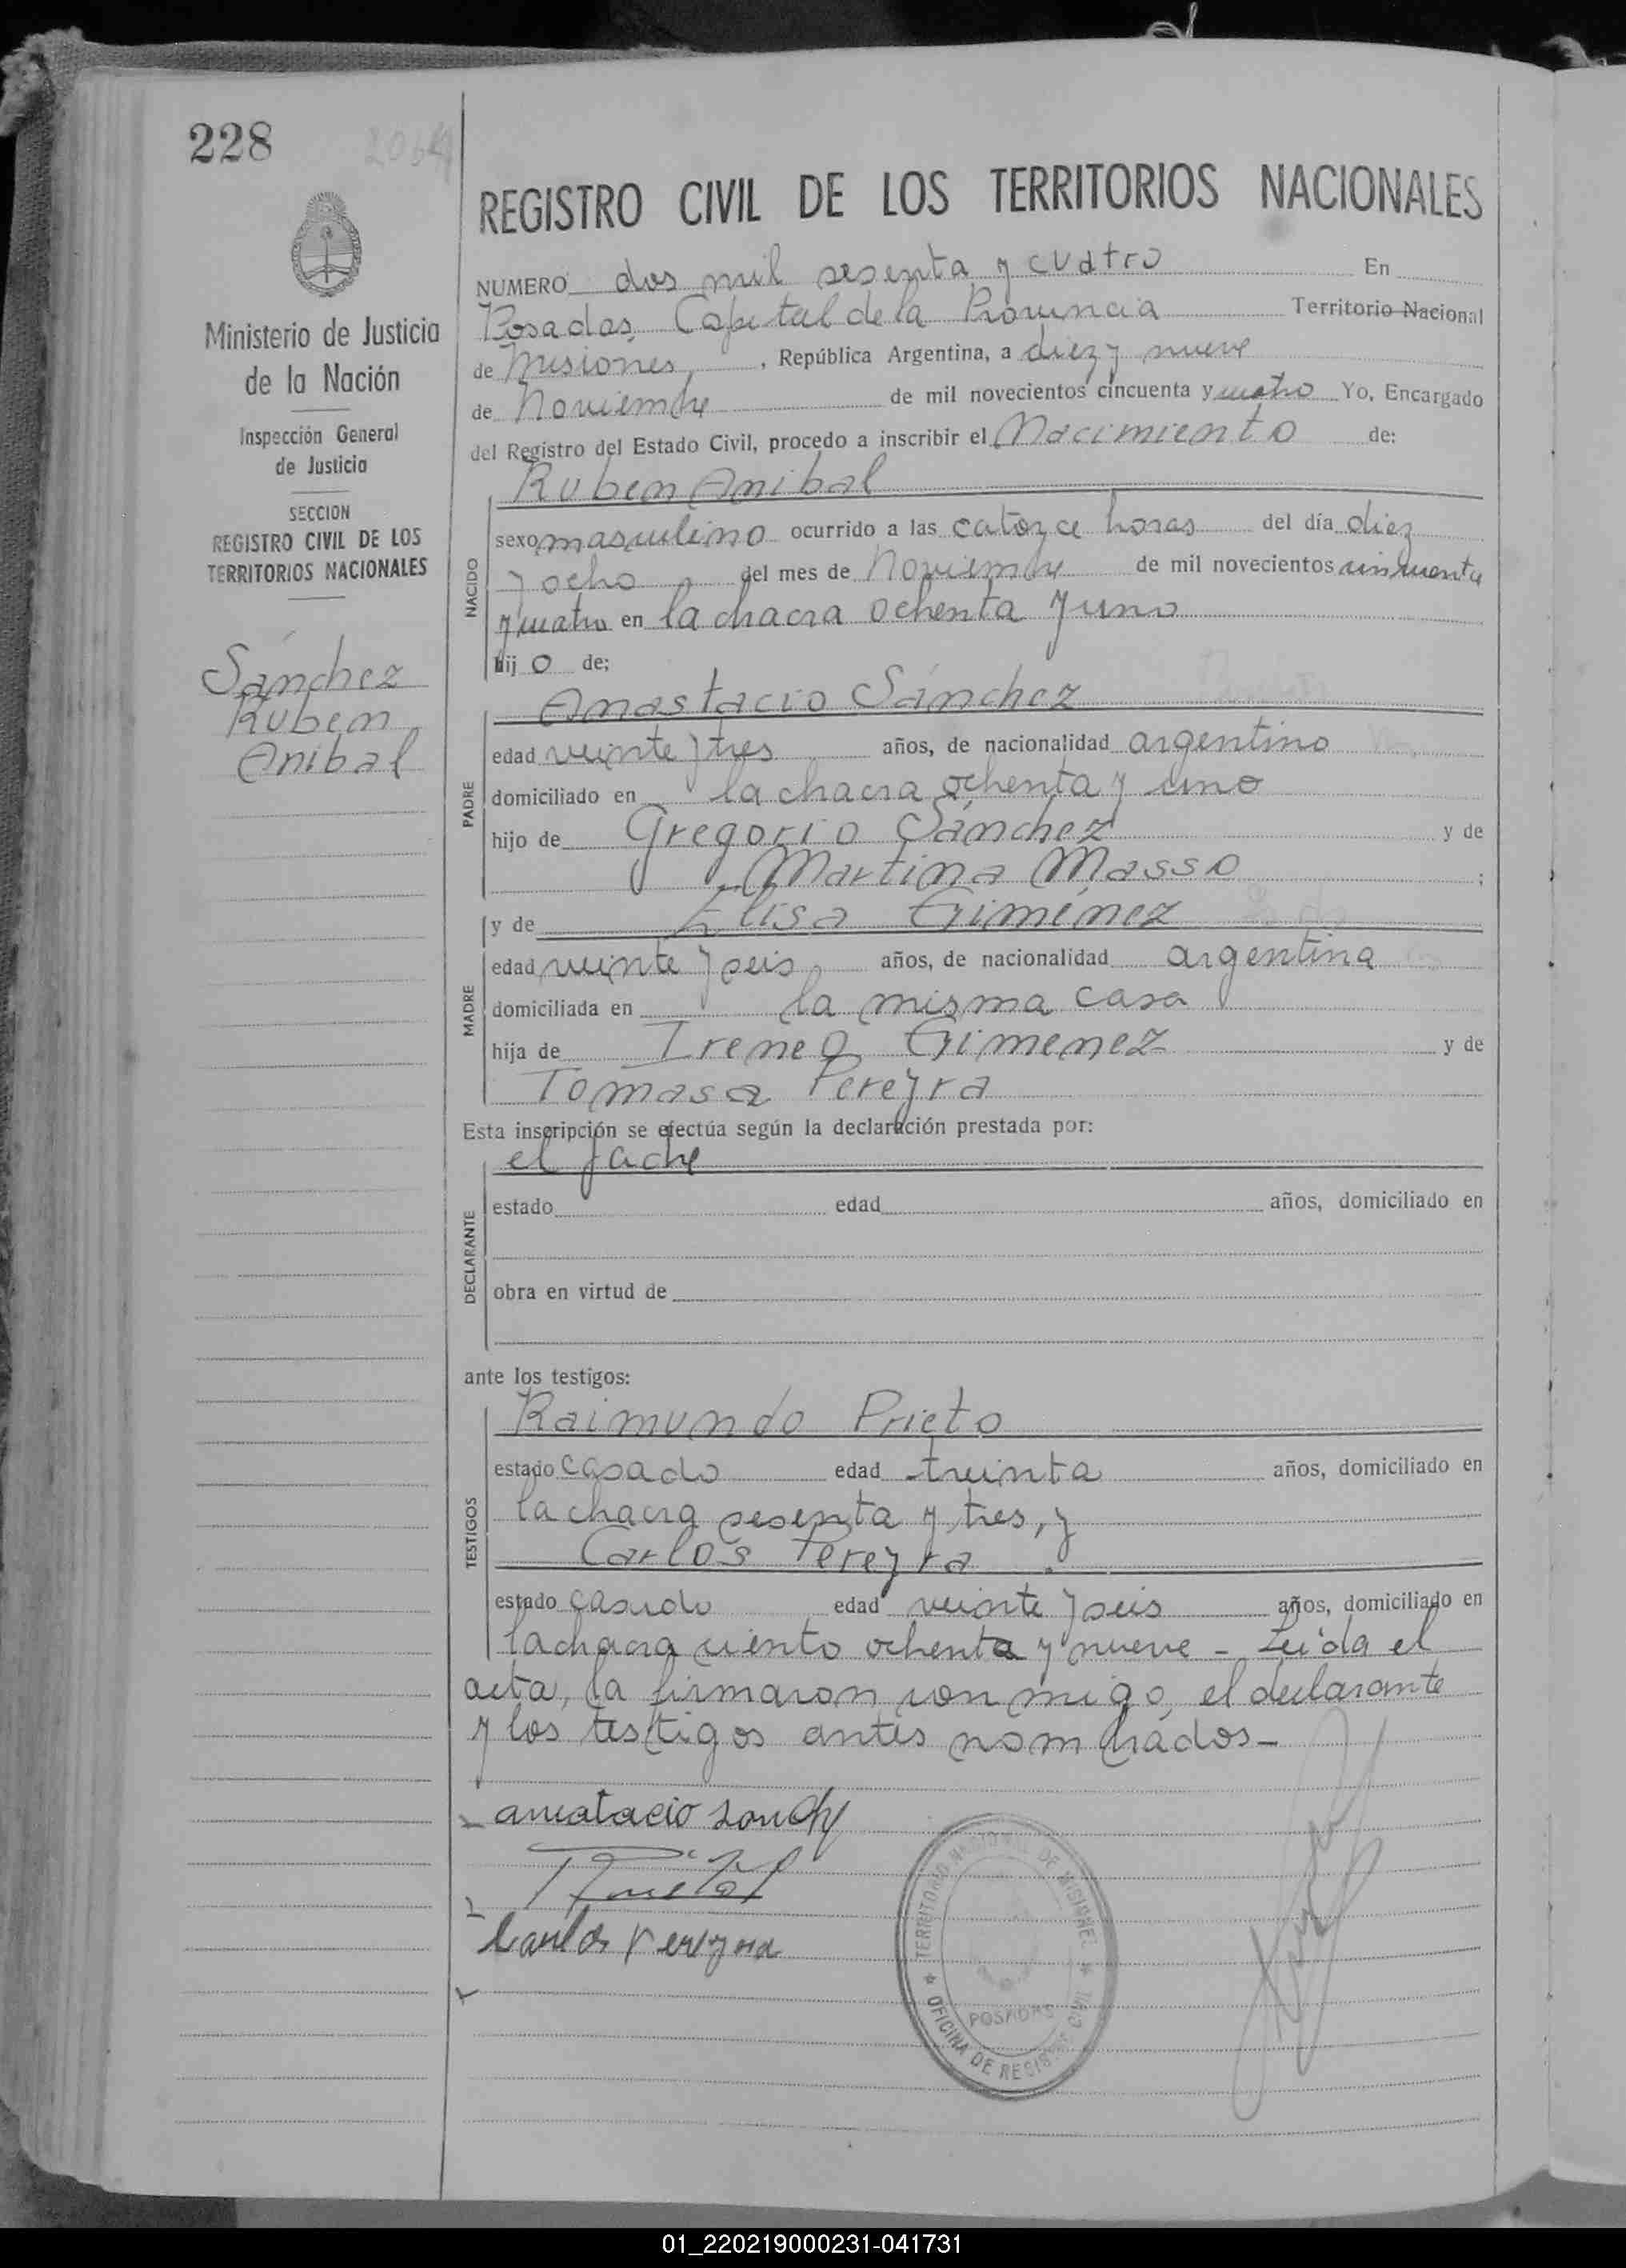 228
2064
REGISTRO CIVIL DE LOS TERRITORIOS NACIONALES
Ministerio de Justicia
de la Nación
Inspección General
de Justicia
SECCION
REGISTRO CIVIL DE LOS
TERRITORIOS NACIONALES
Sánchez
Ruben
Anibal
NUMERO dos mil sesenta y cuatro En
Posadas, Capital de la Provincia Territorio Nacional
de Misiones, , República Argentina, a diez y nueve
de Noviembre de mil novecientos cincuenta y cuatro Yo, Encargado
del Registro del Estado Civil, procedo a inscribir el Nacimiento de:
Ruben Anibal
NACIDO
sexo masculino ocurrido a las catorce horas del día diez
y ocho del mes de Noviembre de mil novecientos cincuenta
y cuatro en la chacra ochenta y uno
hij o de:
Anastacio Sánchez
PADRE
edad veinte y tres años, de nacionalidad argentino
domiciliado en la chacra ochenta y uno
hijo de Gregorio Sánchez y de
Martina Masso ;
y de Elisa Giménez
MADRE
edad veinte y seis años, de nacionalidad argentina
domiciliada en la misma casa
hija de Ireneo Gimenez y de
Tomasa Pereyra
Esta inscripción se efectúa según la declaración prestada por:
el padre
DECLARANTE
estado edad años, domiciliado en
obra en virtud de
ante los testigos:
Raimundo Prieto
TESTIGOS
estado casado edad treinta años, domiciliado en
la chacra sesenta y tres, y
Carlos Pereyra
estado casado edad veinte y seis años, domiciliado en
la chacra ciento ochenta y nueve - Leída el
acta, la firmaron con migo, el declarante
y los testigos antes nombrados-
anastacio sanchz
Carlos Pereyra
TERRITORIO NACIONAL DE MISIONES
POSADAS
OFICINA DE REGISTRO CIVIL
01_220219000231-041731